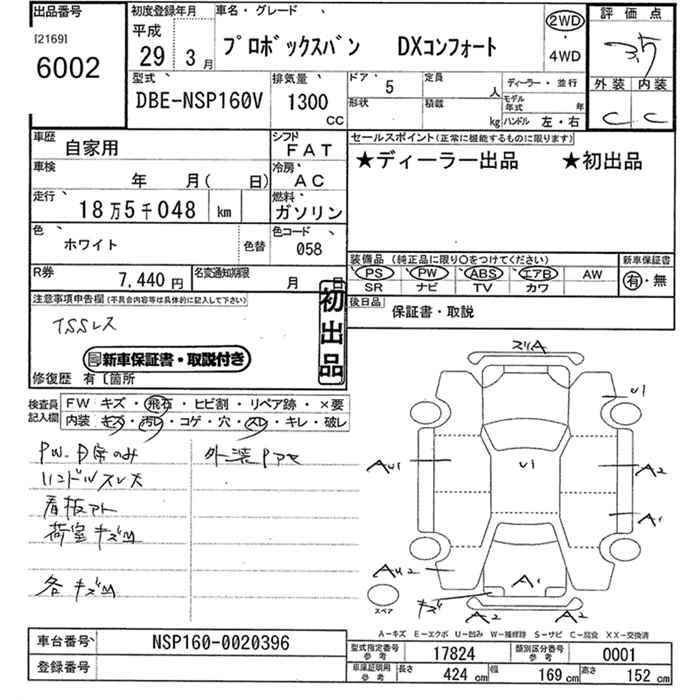 出品番号
[2169]
6002
初度登録年月
平成
29年 3月
車名・グレード
プロボックスバン DXコンフォート
2WD
・
4WD
評価点
3.5
外装 内装
C C
型式
DBE-NSP160V
排気量
1300
CC
ドア 5
形状
定員 人
積載 kg
ディーラー・並行
モデル年式 年
ハンドル 左・右
車歴
自家用
シフト
FAT
車検
年 月( 日)
冷房
AC
走行
18万5千048 km
燃料
ガソリン
色
ホワイト
色替
色コード
058
R券
7,440円
名変通知期限
月 日
セールスポイント(正常に機能するものに限ります)
★ディーラー出品 ★初出品
装備品(純正品に限り○をつけてください)
PS PW ABS エアB AW
SR ナビ TV カワ
新車保証書
有・無
後日品
保証書・取説
注意事項申告欄(不具合内容等は具体的に記入して下さい)
TSSレス
新車保証書・取説付き
初出品
修復歴 有〔箇所
検査員記入欄
FW キズ・飛石・ヒビ割・リペア跡・×要
内装 キズ・汚レ・コゲ・穴・スレ・キレ・破レ
ハンドルスレ大
看板アト
荷室キズM
各キズM
U1
U1
A2
A1
A1
キズ
A2
A2
スペア
A－キズ E－エクボ U－凹み W－補修跡 S－サビ C－腐食 XX－交換済
車台番号
NSP160-0020396
登録番号
型式指定番号
参考
17824
類別区分番号
参考
0001
車庫証明用
参考
長さ 424 cm 幅 169 cm 高さ 152 cm